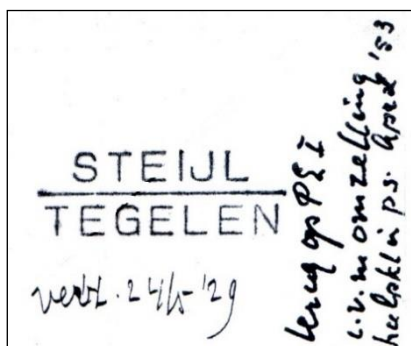 STEIJL
TEGELEN
verbl. 24/5 '29
terug op PS I
i.v.m omzetting
hulpktn ps. April '53